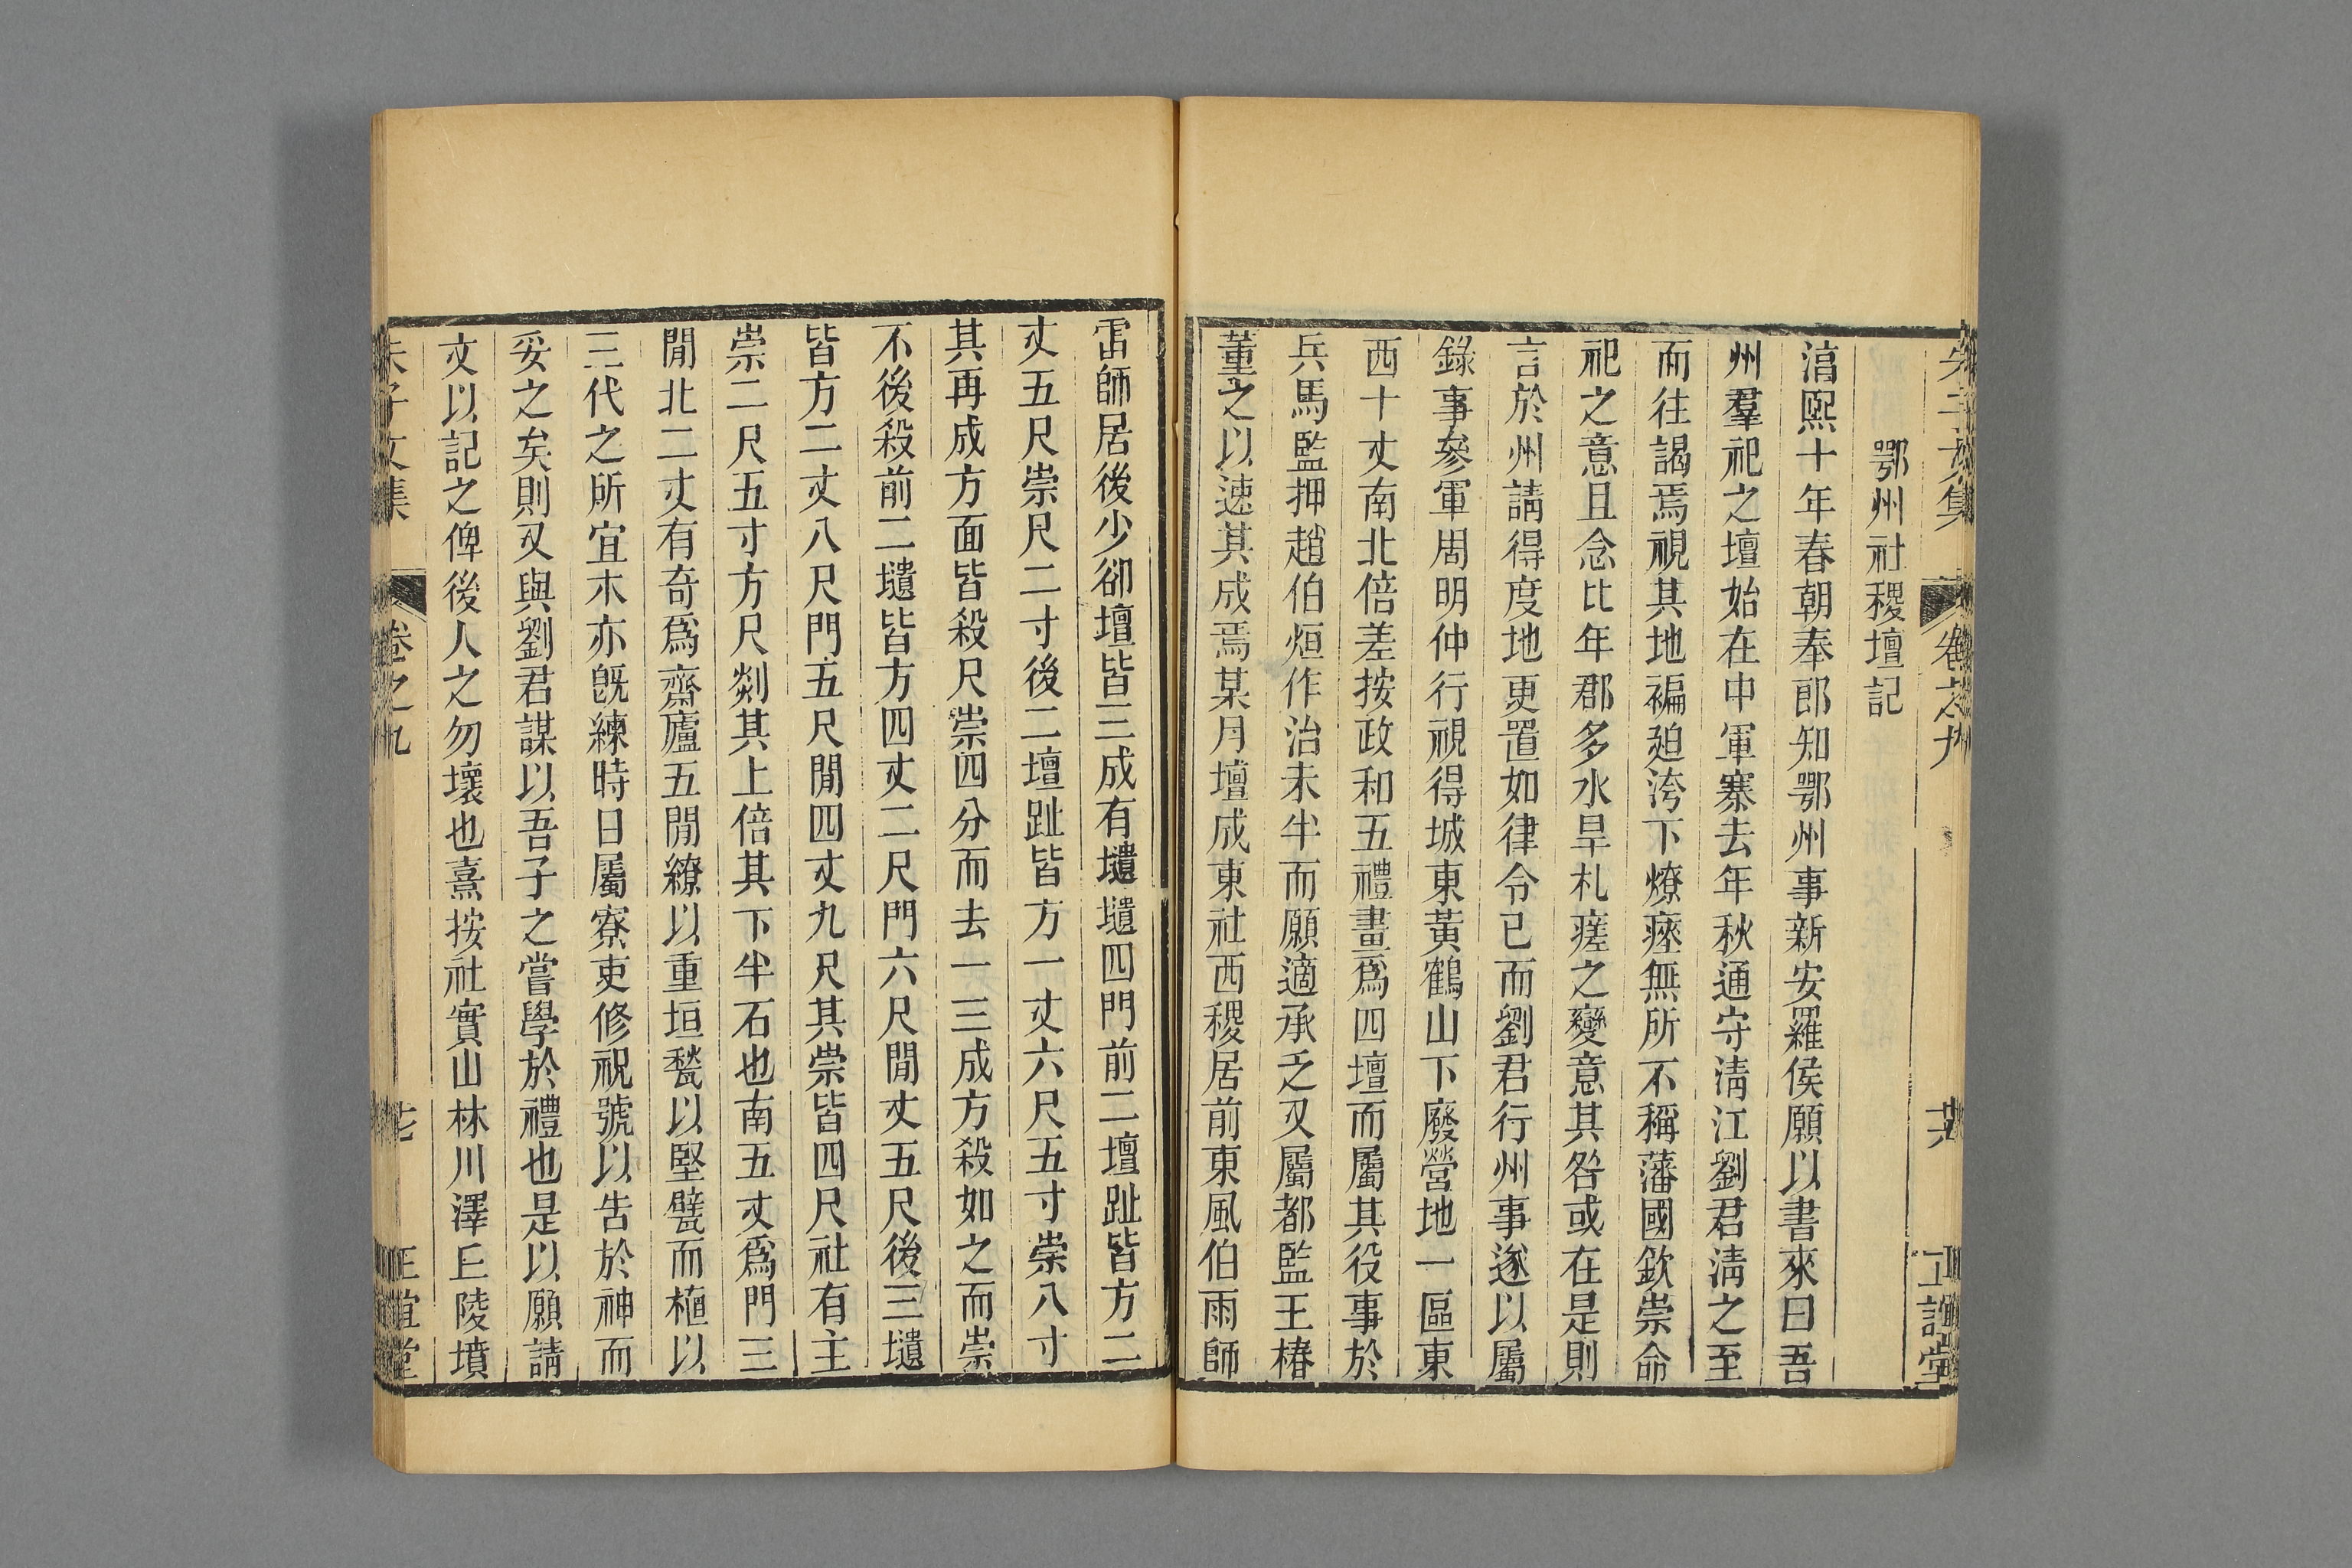 朱子文集
卷之九
正誼堂
鄂州社稷壇記
淳熙十年春朝奉郎知鄂州事新安羅侯願以書來曰吾
州羣祀之壇始在中軍寨去年秋通守淸江劉君淸之至
而往謁焉視其地褊廹洿下燎瘞無所不稱藩國欽崇命
祀之意且念比年郡多水旱札瘥之變意其咎或在是則
言於州請得度地更置如律令已而劉君行州事遂以屬
錄事參軍周明仲行視得城東黃鶴山下廢營地一區東
西十丈南北倍差按政和五禮畫爲四壇而屬其役事於
兵馬監押趙伯烜作治未半而願適承乏又屬都監王椿
董之以速其成焉某月壇成東社西稷居前東風伯雨師
雷師居後少卻壇皆三成有壝壝四門前二壇趾皆方二
丈五尺崇尺二寸後二壇趾皆方一丈六尺五寸崇八寸
其再成方面皆殺尺崇四分而去一三成方殺如之而崇
不後殺前二壝皆方四丈二尺門六尺閒丈五尺後三壝
皆方二丈八尺門五尺閒四丈九尺其崇皆四尺社有主
崇二尺五寸方尺剡其上倍其下半石也南五丈爲門三
閒北二丈有奇爲齋廬五閒繚以重垣甃以堅甓而植以
三代之所宜木亦旣練時日屬寮吏修祝號以告於神而
妥之矣則又與劉君謀以吾子之嘗學於禮也是以願請
文以記之俾後人之勿壞也熹按社實山林川澤丘陵墳
朱子文集
卷之九
正誼堂